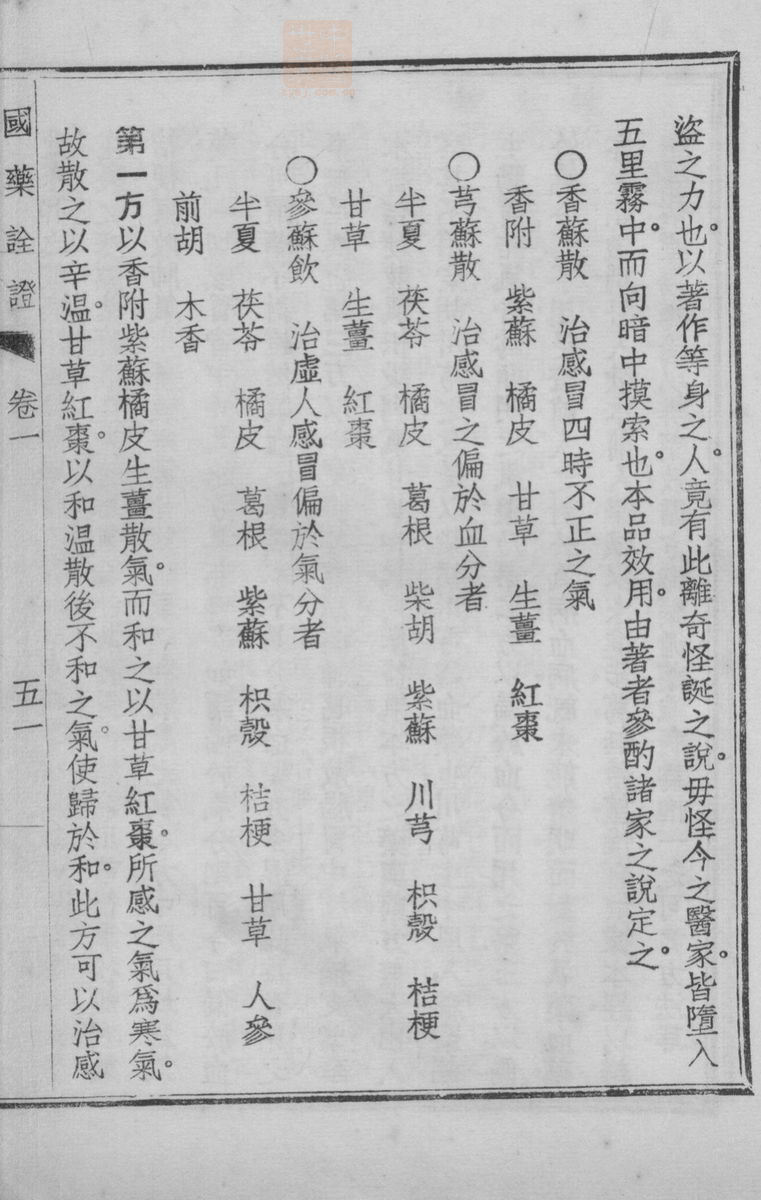 盜之力也。以著作等身之人。竟有此離奇怪誕之說。毋怪今之醫家。皆墮入
五里霧中。而向暗中摸索也。本品效用。由著者參酌諸家之說定之。
○香蘇散　治感冒四時不正之氣
香附　紫蘇　橘皮　甘草　生薑　紅棗
○芎蘇散　治感冒之偏於血分者
半夏　茯苓　橘皮　葛根　柴胡　紫蘇　川芎　枳殼　桔梗
甘草　生薑　紅棗
○參蘇飲　治虛人感冒偏於氣分者
半夏　茯苓　橘皮　葛根　紫蘇　枳殼　桔梗　甘草　人參
前胡　木香
第一方以香附紫蘇橘皮生薑散氣。而和之以甘草紅棗。所感之氣爲寒氣。
故散之以辛溫。甘草紅棗。以和溫散後不和之氣。使歸於和。此方可以治感
國藥詮證　卷一　五一